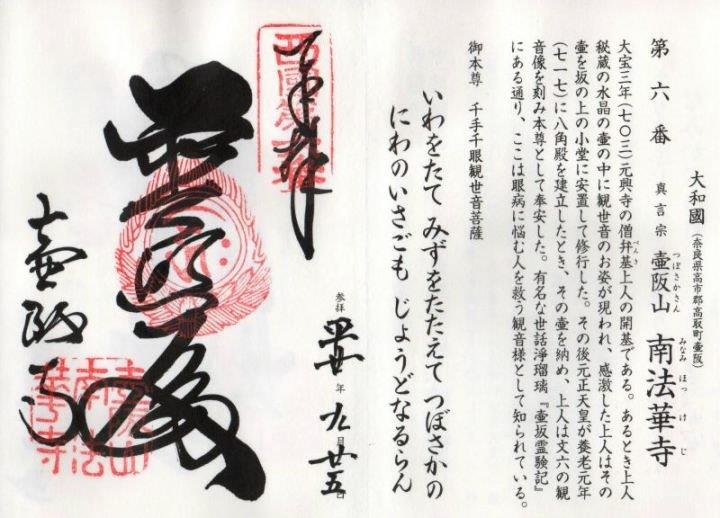 第六番
大和國（奈良県高市郡高取町壷阪）
真言宗 壷阪山 南法華寺
つぼさかさん みなみ ほっ け じ
大宝三年（七〇三）元興寺の僧弁基上人の開基である。あるとき上人
べんき
秘蔵の水晶の壷の中に観世音のお姿が現われ、感激した上人はその
壷を坂の上の小堂に安置して修行した。その後元正天皇が養老元年
（七一七）に八角殿を建立したとき、その壷を納め、上人は丈六の観
音像を刻み本尊として奉安した。有名な世話浄瑠璃『壷坂霊験記』
にある通り、ここは眼病に悩む人を救う観音様として知られている。
御本尊 千手千眼観世音菩薩
いわをたて みずをたたえて つぼさかの
にわのいさごも じょうどなるらん
奉拝
参拝 年 九月廿五日
壷阪寺